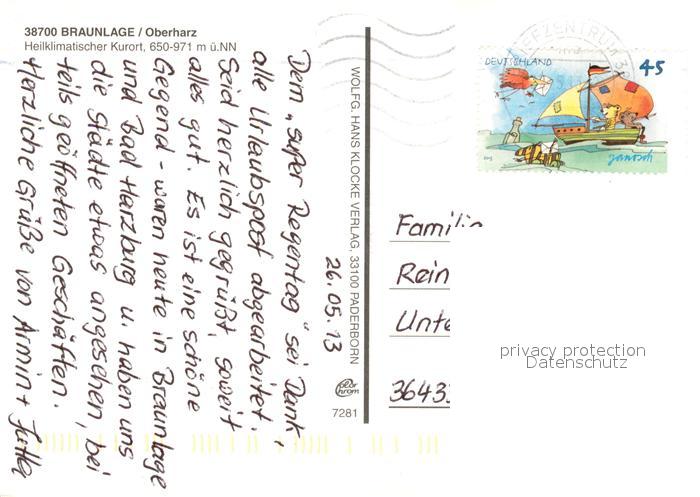 38700 BRAUNLAGE / Oberharz
Heilklimatischer Kurort, 650-971 m ü.NN
26.05.13
Dem „super Regentag" sei Dank,
alle Urlaubspost abgearbeitet.
Seid herzlich gegrüßt, soweit
alles gut. Es ist eine schöne
Gegend - waren heute in Braunlage
und Bad Harzburg u. haben uns
die Städte etwas angesehen, bei
teils geöffneten Geschäften.
Herzliche Grüße von Armin +
WOLFG. HANS KLOCKE VERLAG, 33100 PADERBORN
7281
BRIEFZENTRUM 3
DEUTSCHLAND 45
janosch
Famili
Rein
Unte
3643
privacy protection
Datenschutz